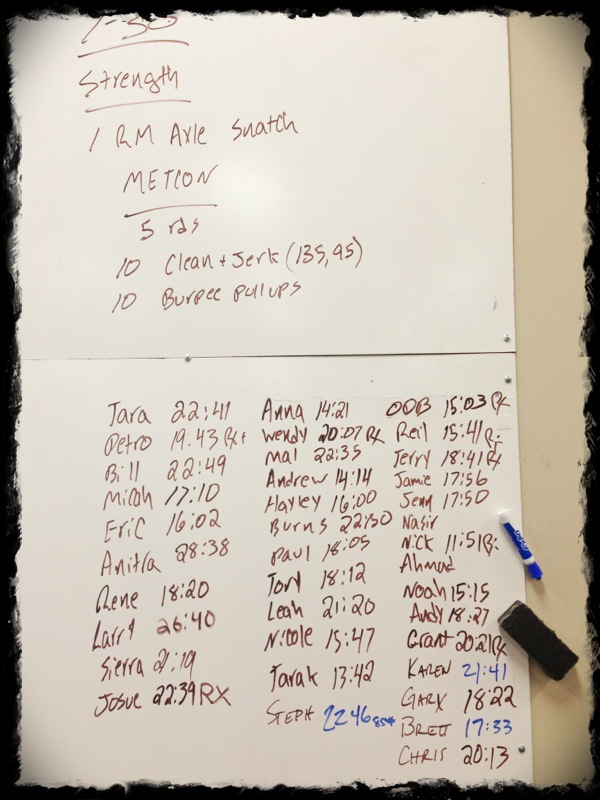 1-30
Strength
1 RM Axle Snatch
METCON
5 rds
10 Clean + Jerk (135,95)
10 Burpee pullups
Tara 22:41
Petro 19:43 Rx+
Bill 22:49
Micah 17:10
Eric 16:02
Anitra 28:38
Rene 18:20
Larry 26:40
Sierra 21:19
Josue 22:39 RX
Anna 14:21
Wendy 20:07 Rx
Mal 22:35
Andrew 14:14
Hayley 16:00
Burns 22:50
Paul 18:05
Tory 18:12
Leah 21:20
Nicole 15:47
Tarak 13:42
STEPH 22:46 85#
ODB 15:03 Rx
Reil 15:41 Rx
Jerry 18:41 Rx
Jamie 17:56
Jenn 17:50
Nasir
Nick 11:51 Rx
Ahmad
Noah 15:15
Andy 18:27
Grant 20:21 Rx
KAREN 21:41
GARY 18:22
BRETT 17:33
CHRIS 20:13